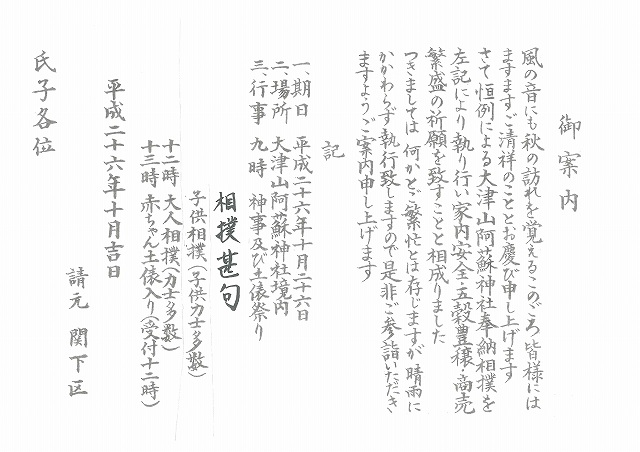 御案内
風の音にも秋の訪れを覚えるこのごろ皆様には
ますますご清祥のこととお慶び申し上げます
さて恒例による大津山阿蘇神社奉納相撲を
左記により執り行い家内安全・五穀豊穣・商売
繁盛の祈願を致すことと相成りました
つきましては何かとご繁忙とは存じますが晴雨に
かかわらず執行致しますので是非ご参詣いただき
ますようご案内申し上げます
記
一、期日 平成二十六年十月二十六日
二、場所 大津山阿蘇神社境内
三、行事 九時 神事及び土俵祭り
相撲甚句
子供相撲(子供力士多数)
十二時 大人相撲(力士多数)
十三時 赤ちゃん土俵入り(受付十二時)
平成二十六年十月吉日
請元 関下区
氏子各位